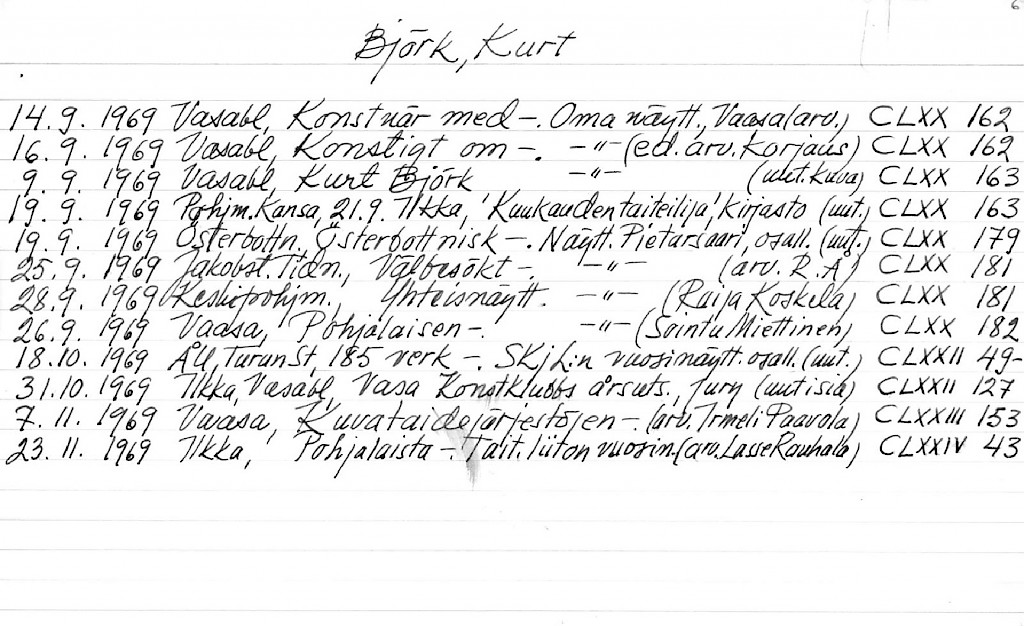 6
Björk, Kurt
14.9. 1969 Vasabl, Konstnär med -. Oma näytt., Vaasa (arv.) CLXX 162
16.9. 1969 Vasabl, Konstigt om -. -"- (ed. arv. Korjaus) CLXX 162
9.9. 1969 Vasabl, Kurt Björk -"- (uut. kuva) CLXX 163
19.9. 1969 Pohjm. Kansa, 21.9. Ilkka, 'Kuukauden taiteilija', Kirjasto (uut.) CLXX 163
19.9. 1969 Österbottn., Österbottnisk -. Näytt. Pietarsaari, osall. (uut.) CLXX 179
25.9. 1969 Jakobst. Tidn., Välbesökt -. -"- (arv. R. Å) CLXX 181
28.9. 1969 Keskipohjm., Yhteisnäytt. -"- (Raija Koskela) CLXX 181
26.9. 1969 Vaasa, Pohjalaisen -. -"- (Sointu Miettinen) CLXX 182
18.10. 1969 ÅU, Turun St, 185 verk -. SKjL:n vuosinäytt. osall. (uut.) CLXXII 49-
31.10. 1969 Ilkka, Vasabl, Vasa Konstklubbs årsuts., jury (uutisia) CLXXII 127
7.11. 1969 Vaasa, Kuvataidejärjestöjen -. (arv. Irmeli Paavola) CLXXIII 153
23.11. 1969 Ilkka, Pohjalaista -. Tait. liiton vuosin. (arv. Lasse Rauhala) CLXXIV 43